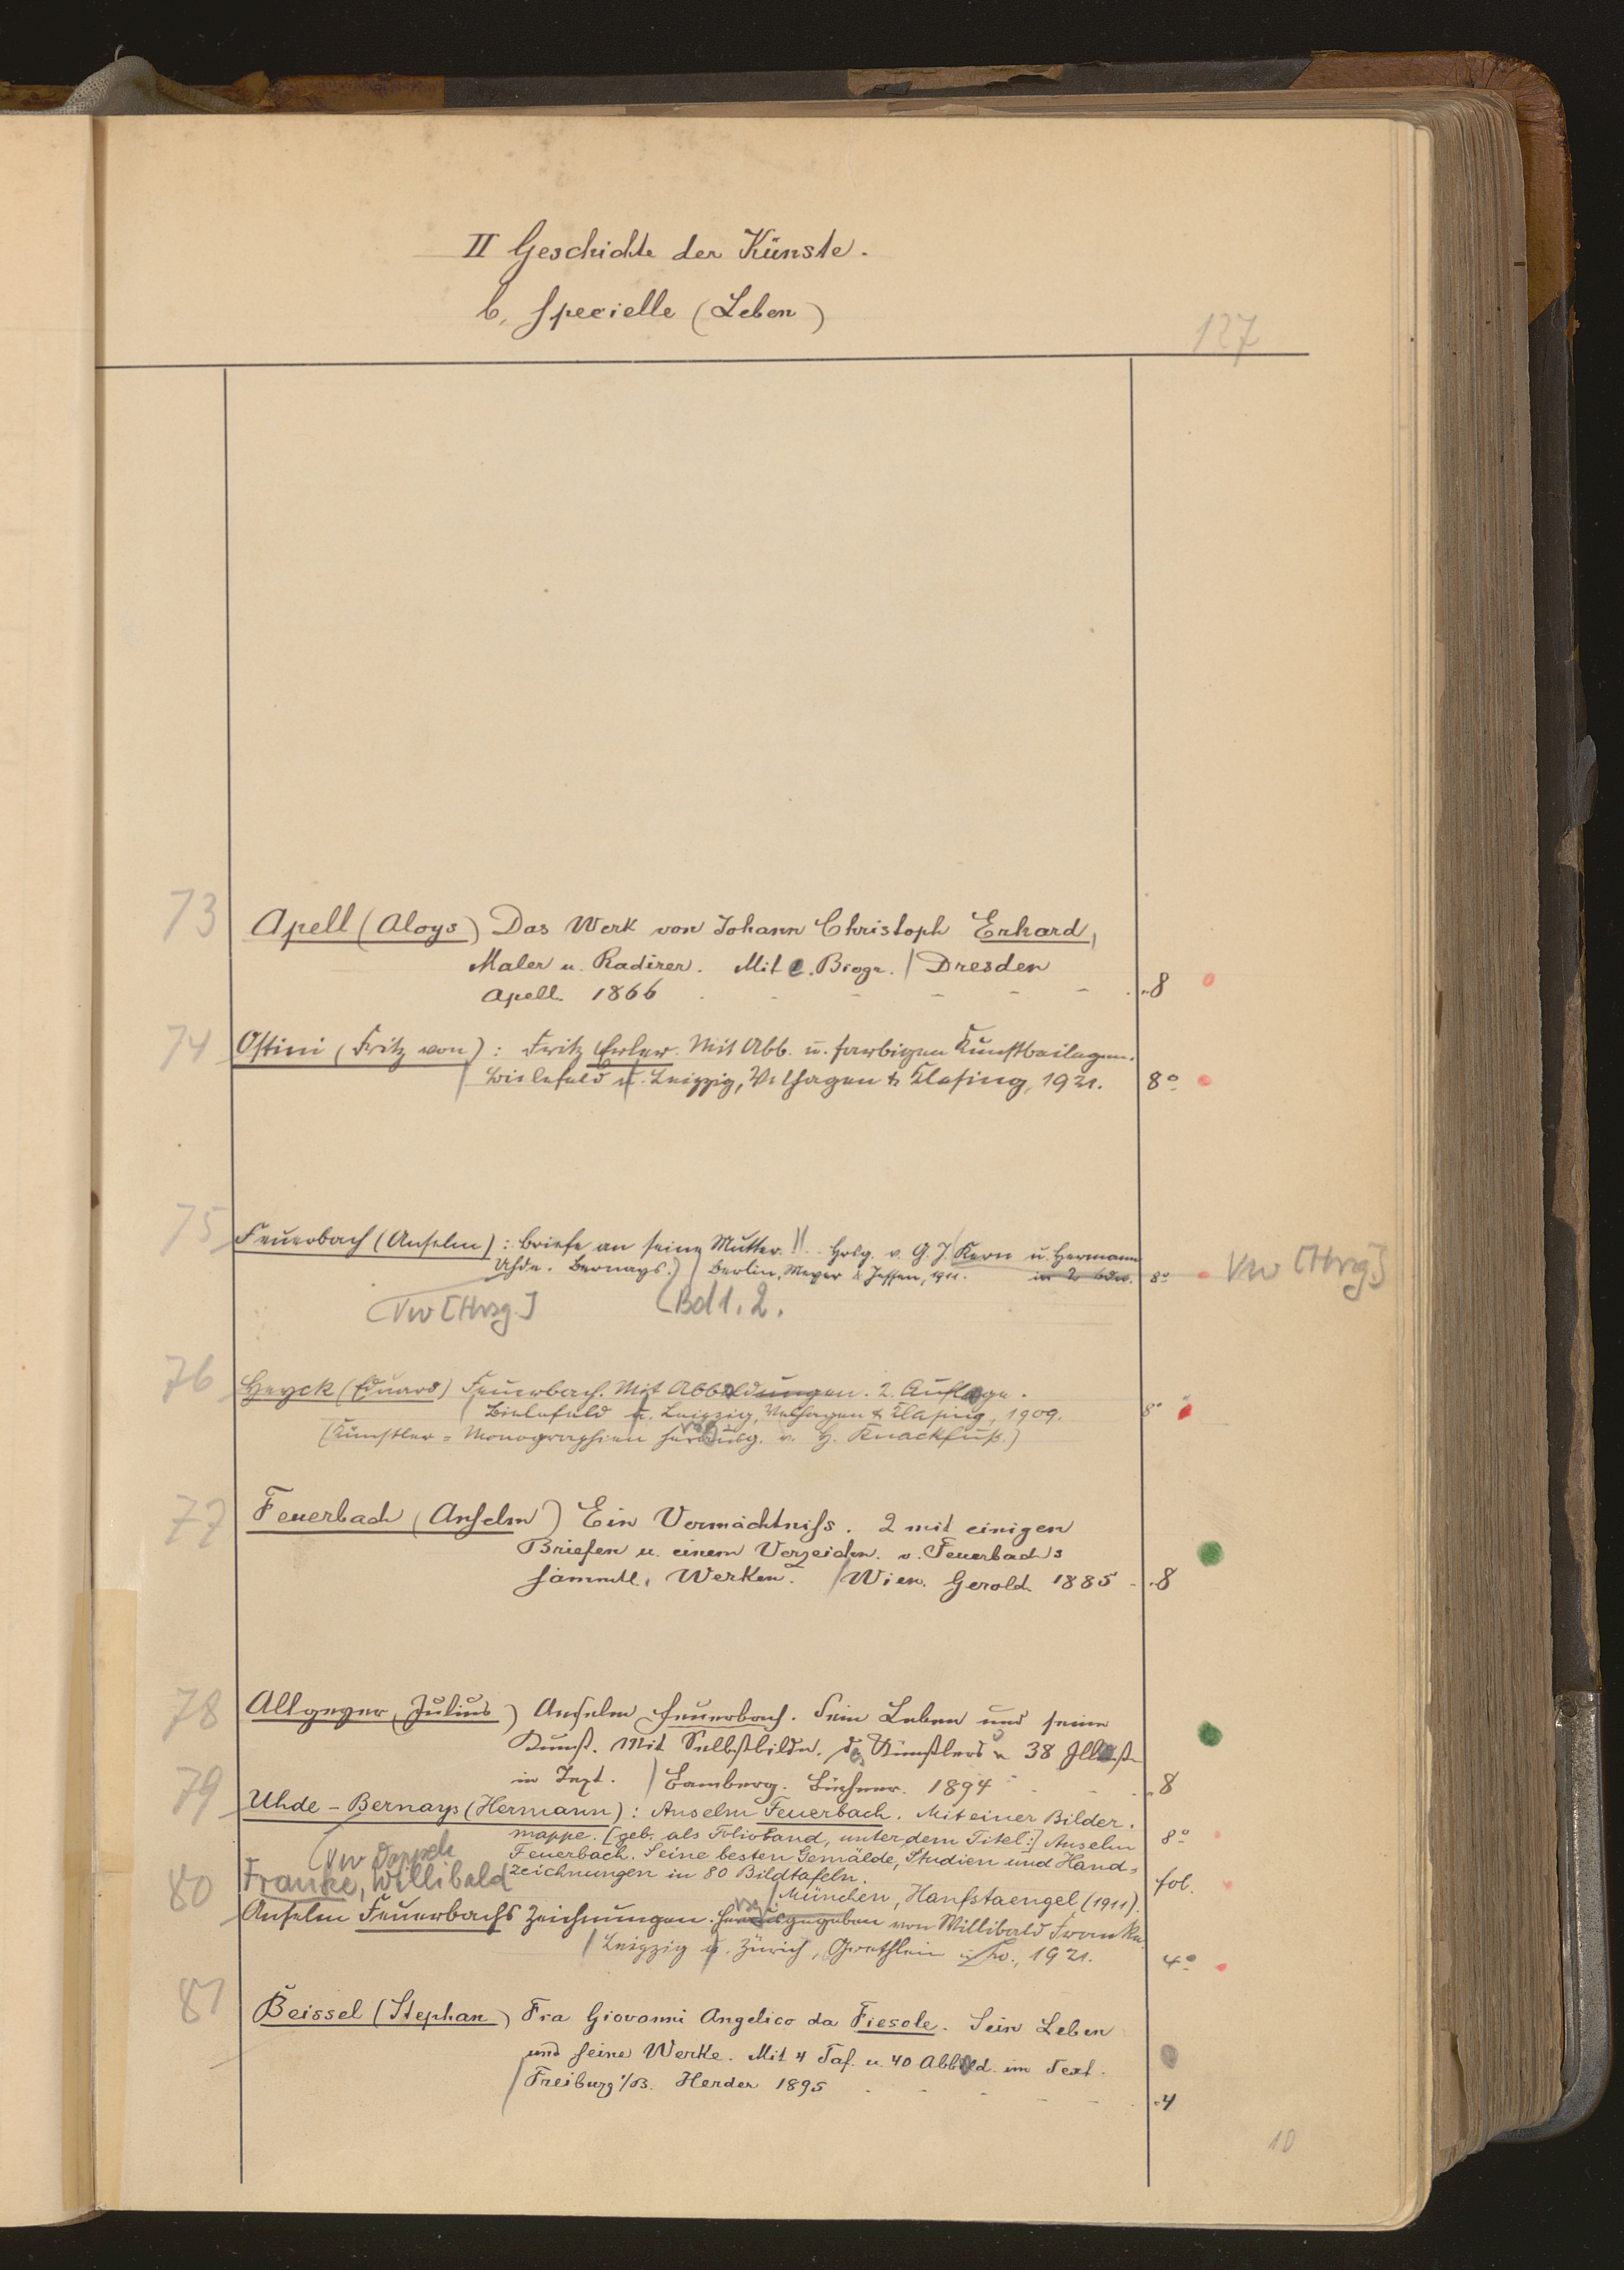 II Geschichte der Künste.
b, specielle (Leben)
127
73
Apell (Aloys) Das Werk von Johann Christoph Erhard,
Maler u. Radirer. Mit e. Biogr. / Dresden
Apell 1866 .8
74
Ostini (Fritz von): Fritz Erler. Mit Abb. u. farbigen Kunstbeilagen.
Bielefeld u. Leipzig, Velhagen & Klasing, 1921. 8°
75
Feuerbach (Anselm): Briefe an seine Mutter. Hrsg. v. G. J. Kern u. Hermann
Uhde-Bernays.) Berlin, Meyer & Jessen, 1911. in 2 Bdn. 8° Vw [Hrsg.]
(Vw [Hrsg.] (Bd 1. 2.
76
Heyck (Eduard) Feuerbach. Mit Abbildungen. 2. Auflage.
Bielefeld u. Leipzig, Velhagen & Klasing, 1909. 8°
(Künstler-Monographien hrsg. v. H. Knackfuß.)
77
Feuerbach (Anselm) Ein Vermächtniss. 2 mit einigen
Briefen u. einem Verzeichn. v. Feuerbachs
sämmtl. Werken. / Wien. Gerold 1885 .8
78
Allgeyer (Julius) Anselm Feuerbach. Sein Leben und seine
Kunst. Mit Selbstbildn. d. Künstlers u 38 Illust.
in Text. / Bamberg. Buchner. 1894 .8
79
Uhde-Bernays (Hermann): Anselm Feuerbach. Mit einer Bilder.
mappe. [geb. als Folioband, unter dem Titel:] Anselm 8°
Feuerbach. Seine besten Gemälde, Studien und Hand=
zeichnungen in 80 Bildtafeln. fol.
/ München, Hanfstaengel (1911).
(Vw Doppele
80
Franke, Willibald
Anselm Feuerbachs Zeichnungen. Herausgegeben von Willibald Franke.
/ Leipzig u. Zürich, Grethlein u. Co., 1921. 4°
81
Beissel (Stephan) Fra Giovanni Angelico da Fiesole. Sein Leben
und seine Werke. Mit 4 Taf. u. 40 Abbild. im Text.
/ Freiburg i/B. Herder 1895 .4
10